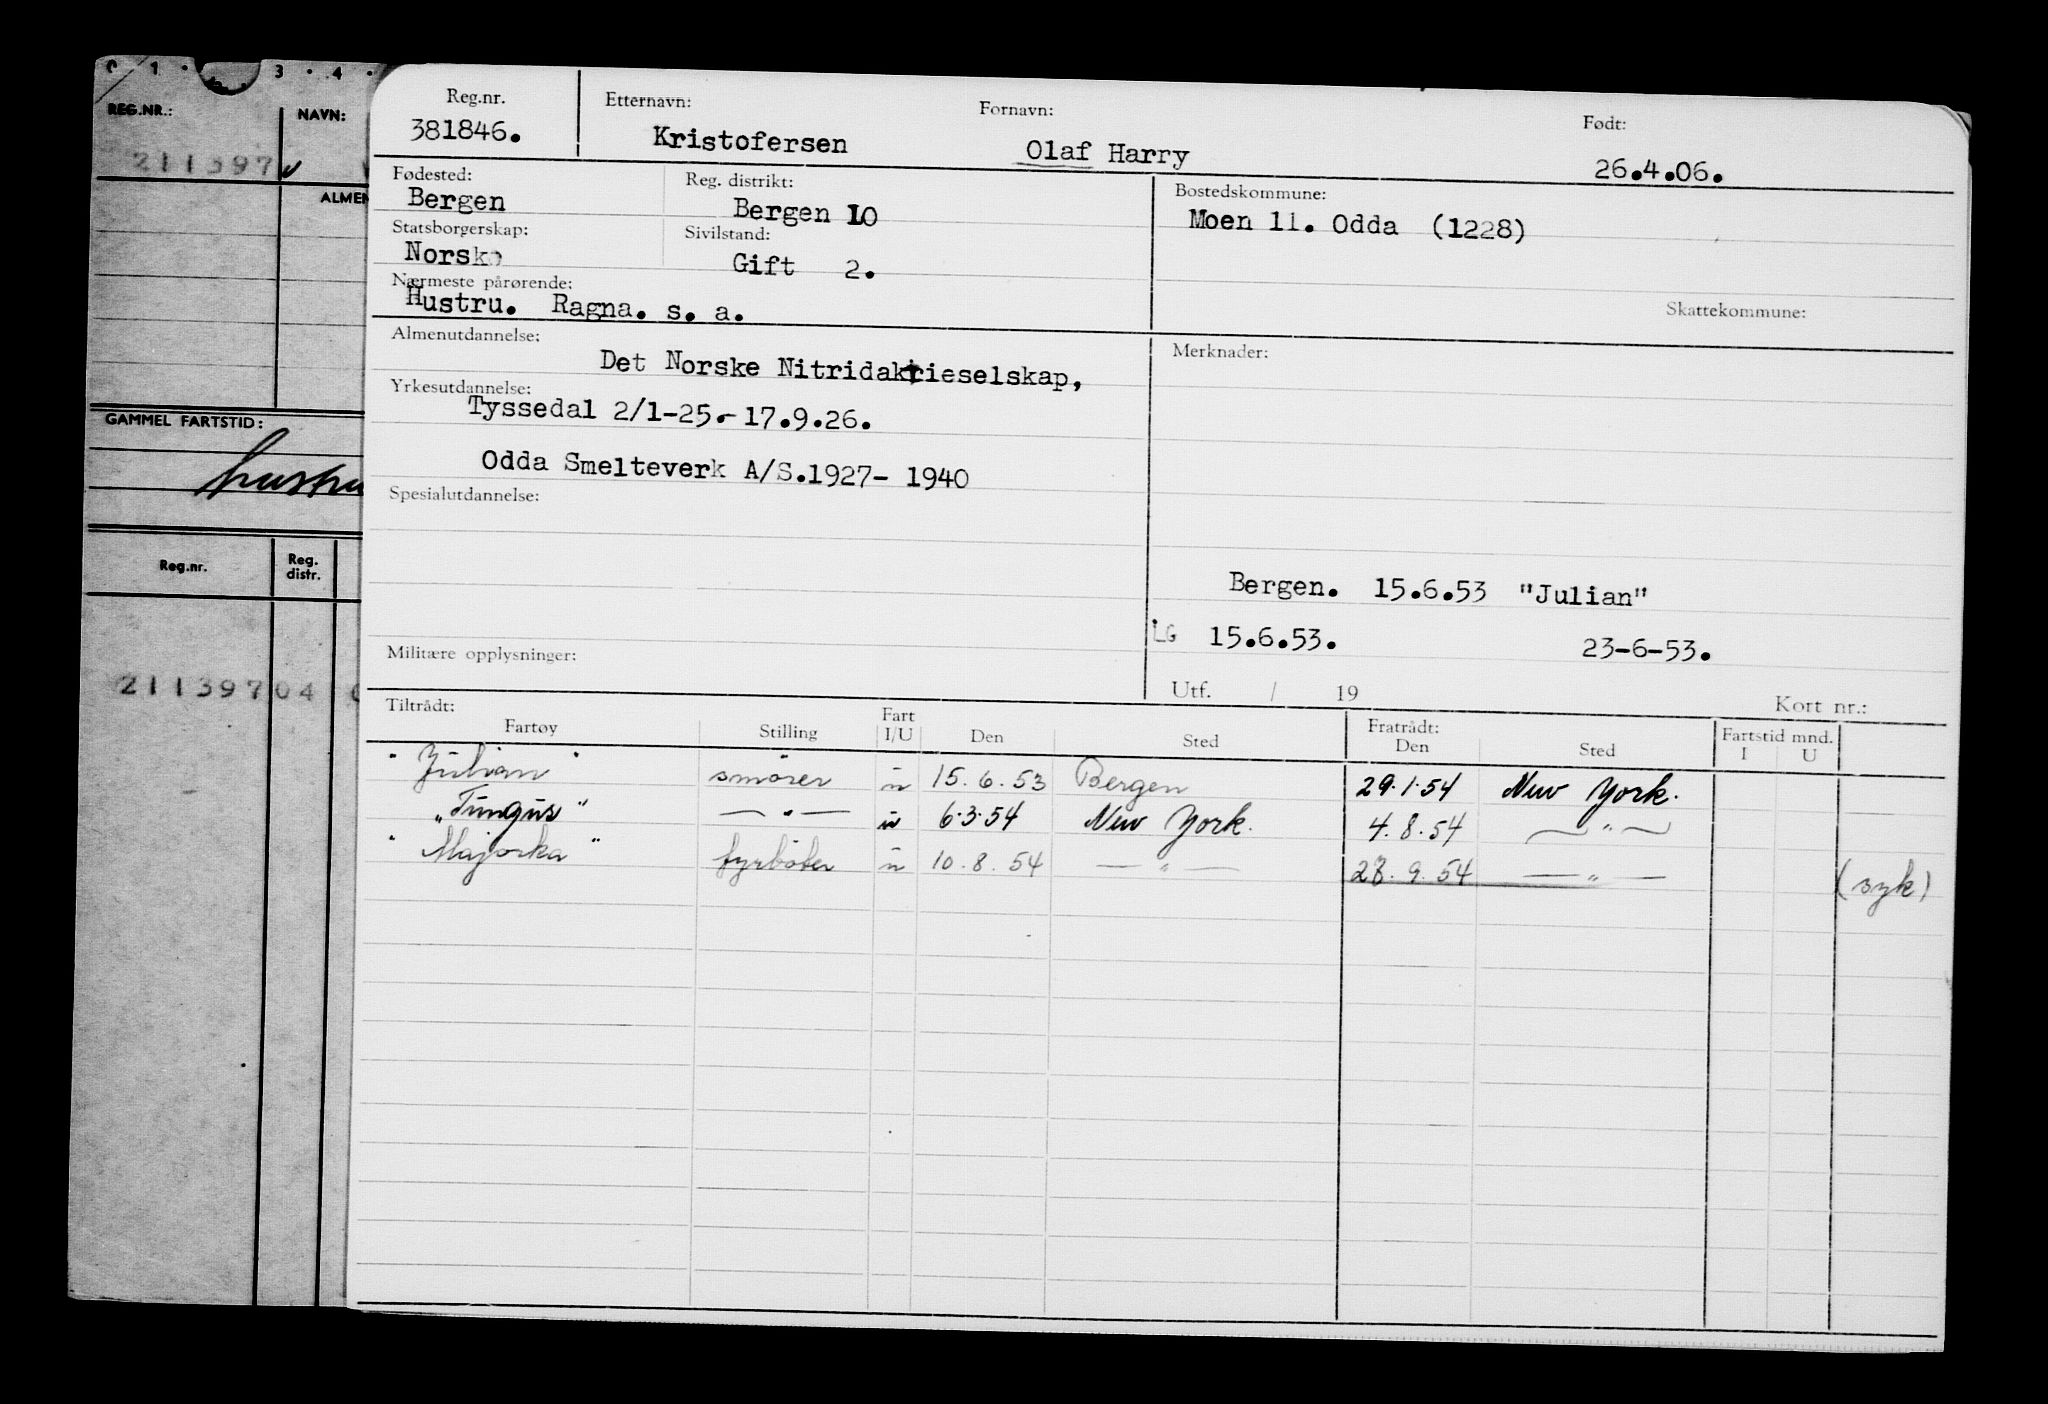 1 · 3 · 4 ·
REG.NR.: NAVN:
211397
ALMEN
GAMMEL FARTSTID:
hustru
Reg.nr. Reg. distr.
21139704
Reg.nr. Etternavn: Fornavn: Født:
381846. Kristofersen Olaf Harry 26.4.06.
Fødested: Reg. distrikt: Bostedskommune:
Bergen Bergen 10 Moen 11. Odda (1228)
Statsborgerskap: Sivilstand:
Norsk Gift 2.
Nærmeste pårørende: Skattekommune:
Hustru. Ragna. s. a.
Almenutdannelse: Merknader:
Det Norske Nitridaktieselskap,
Yrkesutdannelse:
Tyssedal 2/1-25.- 17.9.26.
Odda Smelteverk A/S.1927- 1940
Spesialutdannelse:
Bergen. 15.6.53 "Julian"
LG 15.6.53. 23-6-53.
Militære opplysninger:
Utf. / 19 Kort nr.:
Tiltrådt: Fratrådt: Fartstid mnd.
Fartøy Stilling Fart I/U Den Sted Den Sted I U
"Julian" smører u 15.6.53 Bergen 29.1.54 New York.
"Tungus" — " — u 6.3.54 New York. 4.8.54 — " —
"Majorka" fyrbøter u 10.8.54 — " — 28.9.54 — " — (syk)